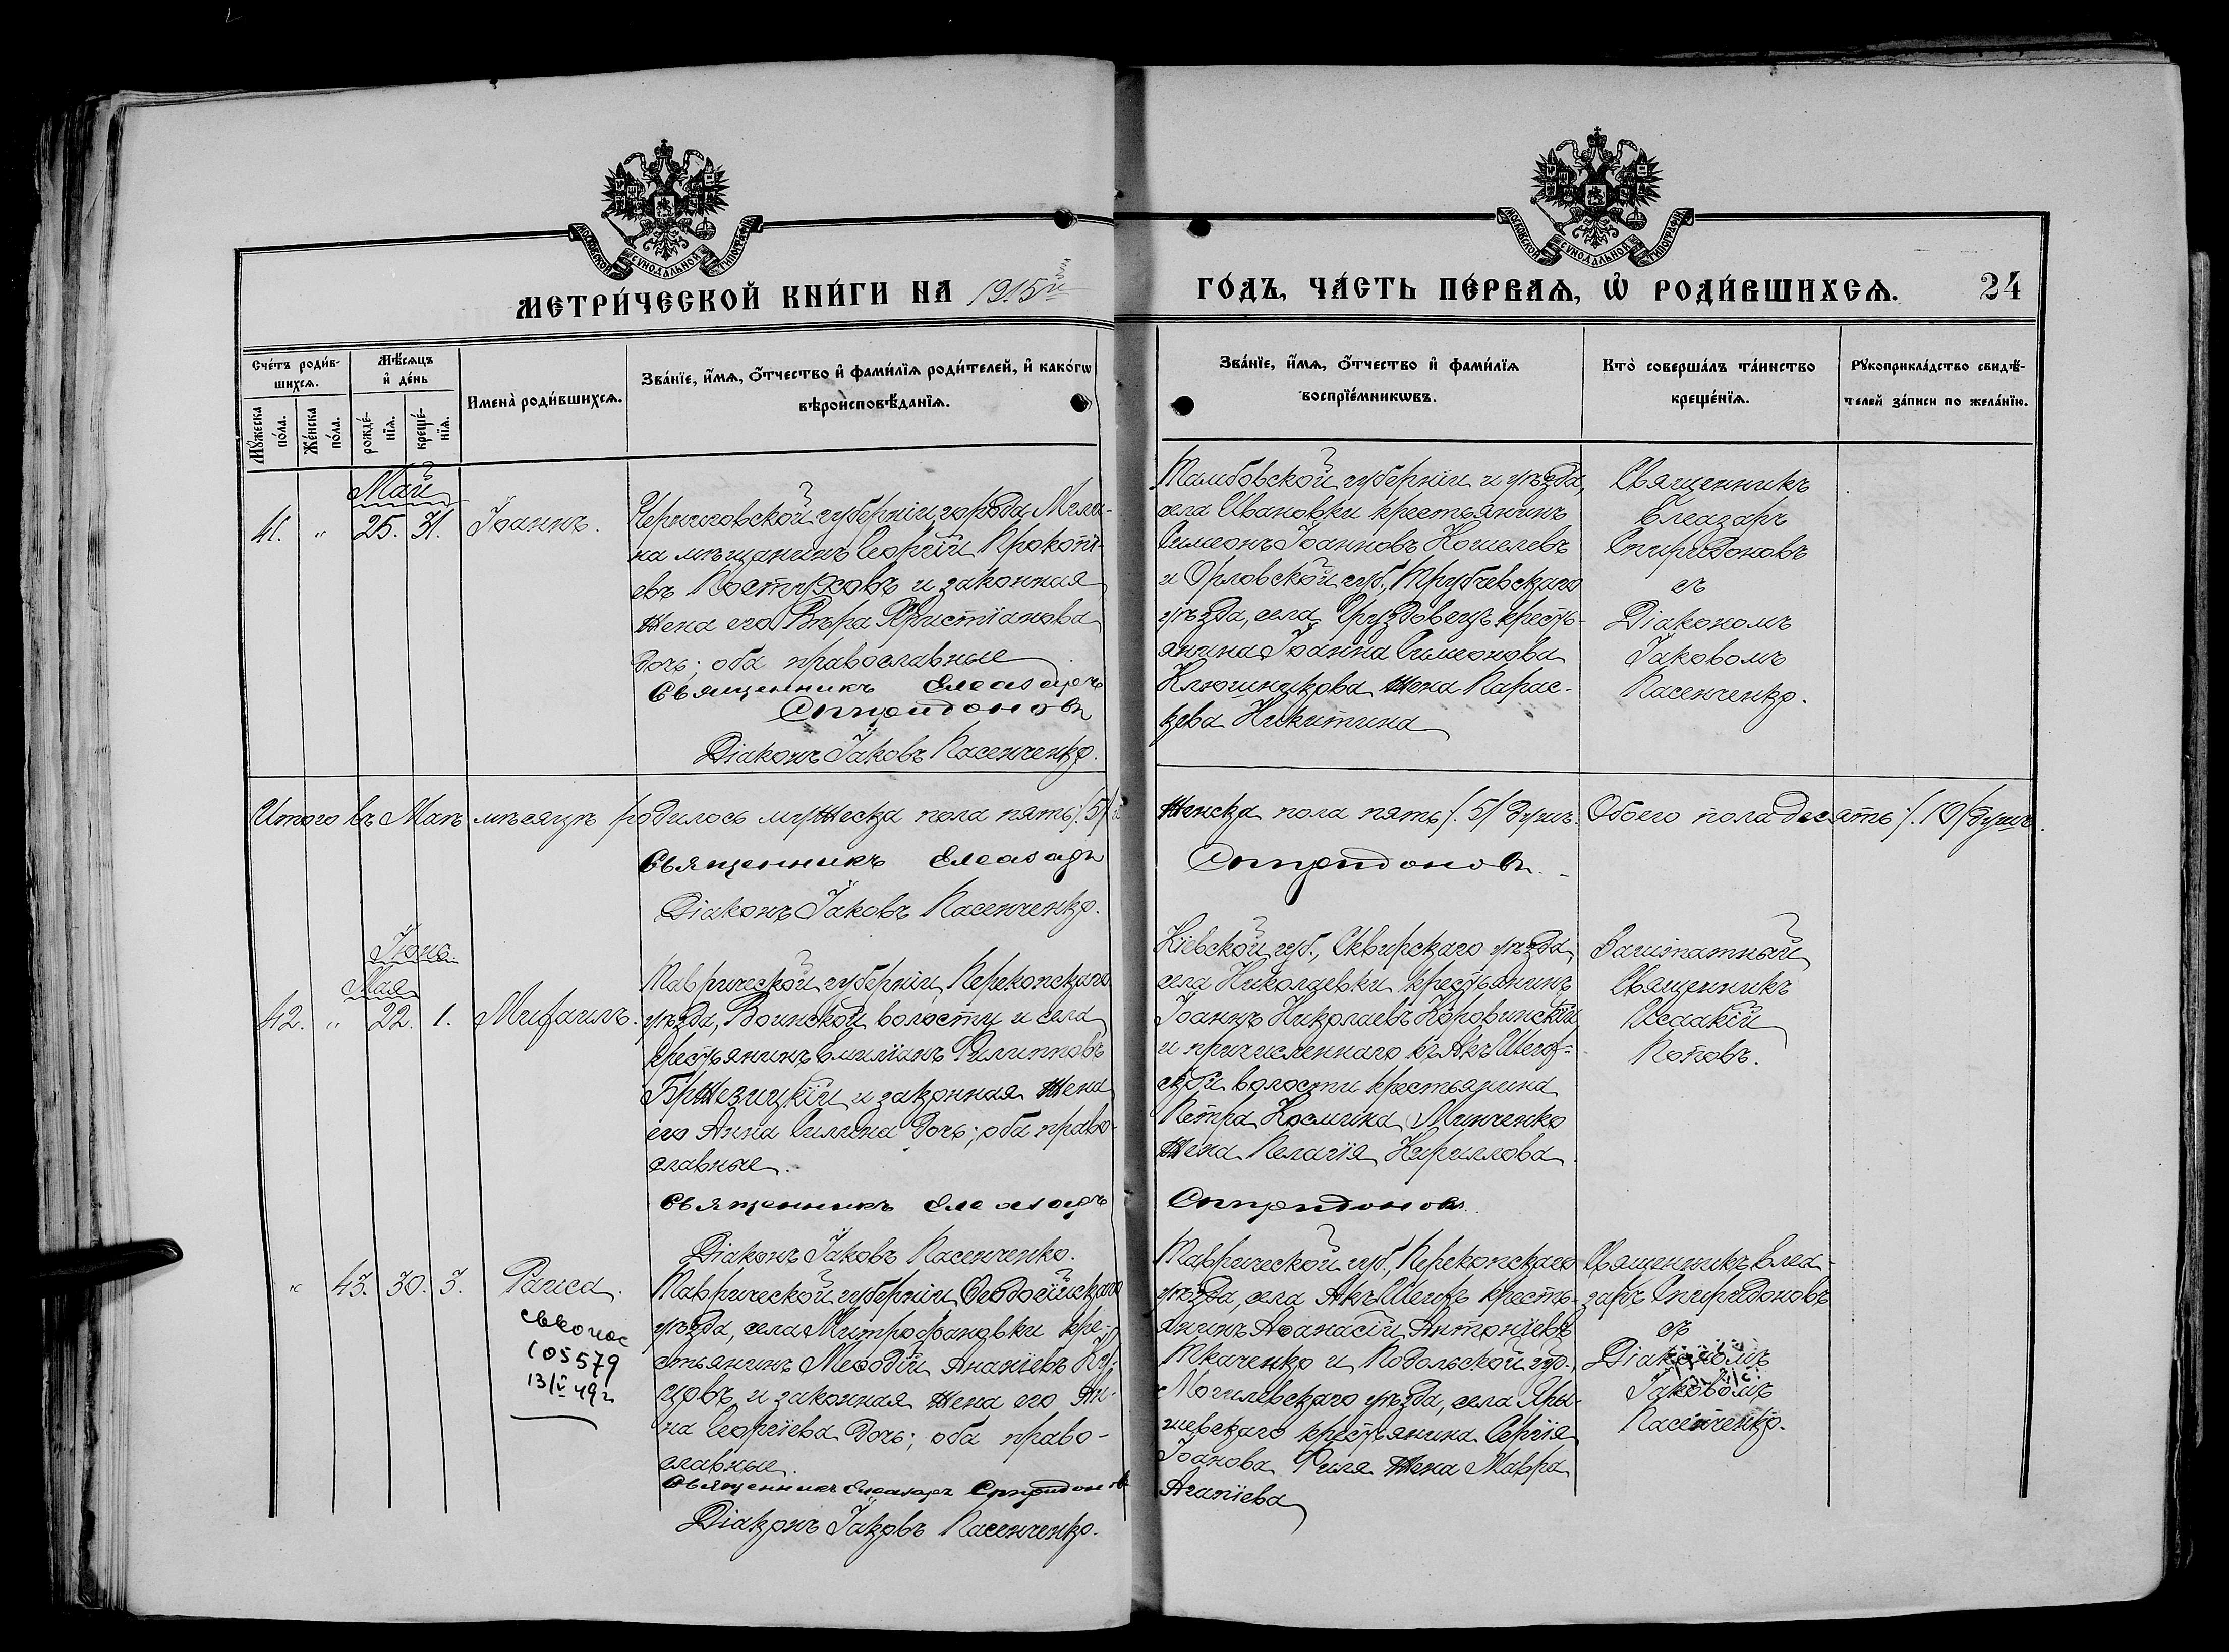 МОСКОВСКОЙ СѴНОДАЛЬНОЙ ТИПОГРАФІИ
МОСКОВСКОЙ СѴНОДАЛЬНОЙ ТИПОГРАФІИ
МЕТРИ́ЧЕСКОЙ КНИ́ГИ НА 1915й
ГО́ДЪ, ЧА́СТЬ ПЕ́РВАѦ, Ѡ҆ РОДИ́ВШИХСѦ. 24
Сче́тъ роди́в-
шихсѧ.
Мꙋ́жеска по́ла.
Же́нска по́ла.
Мѣ́сѧцъ
и҆ де́нь
рожде́-
нїѧ.
креще́-
нїѧ.
Имена̀ роди́вшихсѧ.
Зва́нїе, и҆́мѧ, о҆́тчество и҆ фами́лїѧ роди́телей, и҆ како́гѡ
вѣроисповѣ́данїѧ.
Зва́нїе, и҆́мѧ, о҆́тчество и҆ фами́лїѧ
воспрїе́мникѡвъ.
Кто̀ соверша́лъ та́инство
креще́нїѧ.
Рꙋкоприкла́дство свидѣ́-
телей за́писи по жела́нїю.
Май
41. " 25. 31. Іоаннъ.
Черниговской губерніи города Мгли-
на мѣщанинъ Георгій Прокопі-
евъ Пастуховъ и законная
жена его Вѣра Христіанова
дочь; оба православные
Священникъ Елеазаръ
Спиридоновъ
Діаконъ Іаковъ Пасенченко.
Тамбовской губерніи и уѣзда,
села Ивановки крестьянинъ
Симеонъ Іоанновъ Кошелевъ
и Орловской губ., Трубчевскаго
уѣзда, села Груздовецъ кресть-
янина Іоанна Симеонова
Ключникова жена Парас-
кева Никитина
Священникъ
Елеазаръ
Спиридоновъ
съ
Діакономъ
Іаковомъ
Пасенченко.
Итого въ Маѣ мѣсяцѣ родилось мужеска пола пять /.5/
женска пола пять /.5/ душъ. Обоего пола десять /.10/ душъ.
Священникъ Елеазаръ Спиридоновъ.
Діаконъ Іаковъ Пасенченко.
Іюнь.
Мая
42. " 22. 1. Михаилъ.
Таврической губерніи, Перекопскаго
уѣзда, Воинской волости и села
крестьянинъ Емиліанъ Филипповъ
Бржезицкій и законная жена
его Анна Силина дочь; оба право-
славные.
Священникъ Елеазаръ Спиридоновъ.
Діаконъ Іаковъ Пасенченко.
Кіевской губ., Сквирскаго уѣзда
села Николаевки крестьянинъ
Іоаннъ Николаевъ Коровинскій
и причисленнаго къ Акъ Шейх-
ской волости крестьянина
Петра Космина Минченко
жена Пелагія Кириллова.
Заштатный
Священникъ
Исаакій
Поповъ.
" 43. 30. 3. Раиса.
105579
13/V 49 г
Таврической губерніи Ѳеодосійскаго
уѣзда, села Митрофановки кре-
стьянинъ Меѳодій Ананіевъ
и законная жена его Ан-
на Георгіева дочь; оба право-
славные.
Священникъ Елеазаръ Спиридоновъ
Діаконъ Іаковъ Пасенченко.
Таврической губ., Перекопскаго
уѣзда, села Акъ Шейхъ кресть-
янинъ Аѳанасій Антоніевъ
Ткаченко и Подольской губ.,
Могилевскаго уѣзда, села Яры-
шевскаго крестьянина Сергія
Іоанова Филя жена Мавра
Агапіева
Священникъ Елеа-
заръ Спиридоновъ
съ
Діакономъ
Іаковомъ
Пасенченко.